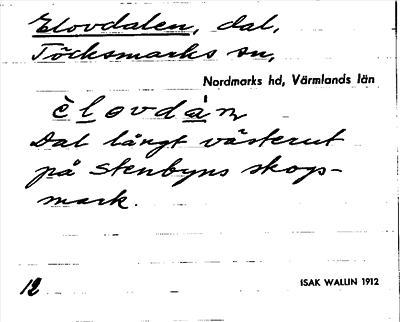 Elovdalen, dal,
Töcksmarks sn,
Nordmarks hd, Värmlands län
è l o v d à n
Dal långt västerut
på Stenbyns skogs-
mark.
12
ISAK WALLIN 1912